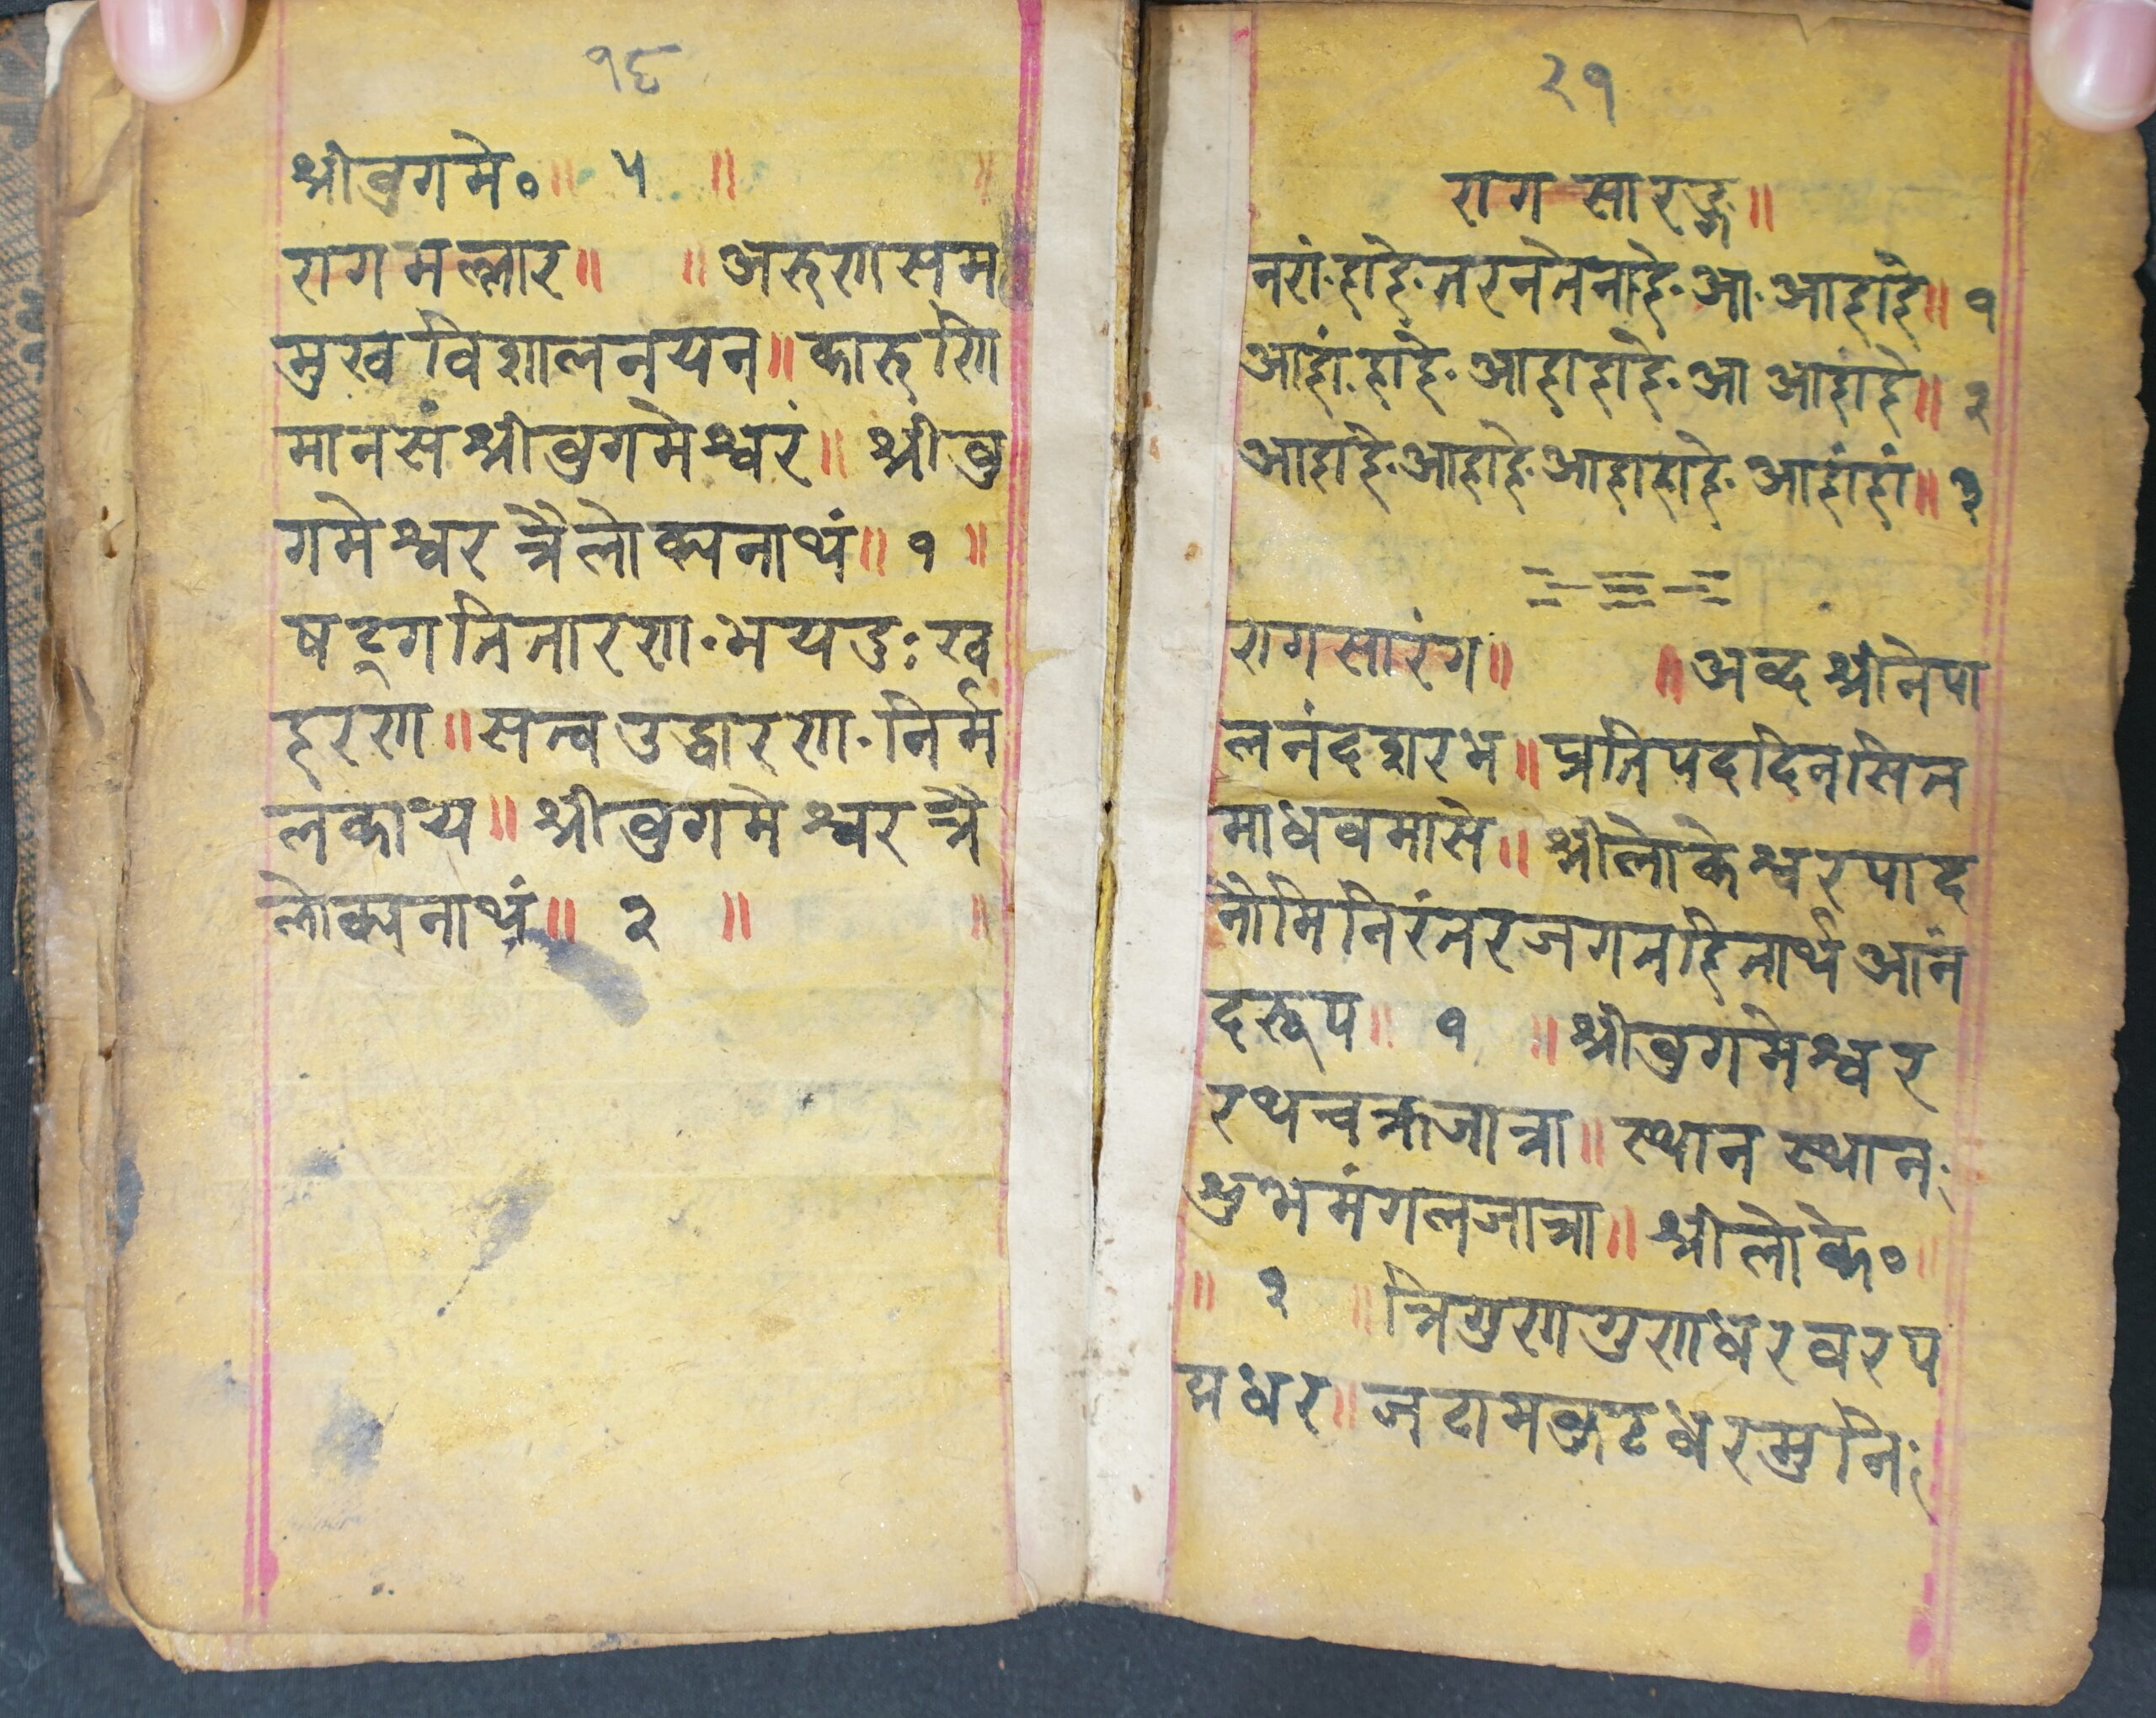 १६
श्रीवुगमे० ॥ ५ ॥ ॥
रागमल्लार ॥ ॥ अरुणसम
मुखविशालनयन ॥ कारुणि
मानसंश्रीवुगमेश्वरं ॥ श्रीवु
गमेश्वरत्रैलोक्यनाथं ॥ १ ॥
षद्गतितारण · भयदुःख
हरण ॥ सत्वउद्धारण · निर्म
लकाय ॥ श्रीवुगमेश्वरत्रै
लोक्यनाथं ॥ २ ॥ ॥
२१
राग सारङ्ग ॥
नरां · हाहे · तरनेतेनाहे · आ · आहाहे ॥ १
आहां · हाहे · आहाहाहे · आ आहाहे ॥ २
आहाहे · आहाहे · आहाहाहे · आहांहां ॥ ३
रागसारंग ॥ ॥ अव्दश्रीनेपा
लनंदशरभ ॥ प्रतिपददिनसित
माधवमासे ॥ श्रीलोकेश्वरपाद
नौमिनिरंतरजगतहितार्थआनं
दरूप ॥ १ ॥ श्रीवुगमेश्वर
रथचक्रजात्रा ॥ स्थान स्थान
शुभमंगलजात्रा ॥ श्रीलोके० ॥
॥ २ ॥ त्रिगुणगुणधरवरप
द्मधर ॥ जटामकुटधरमुनि